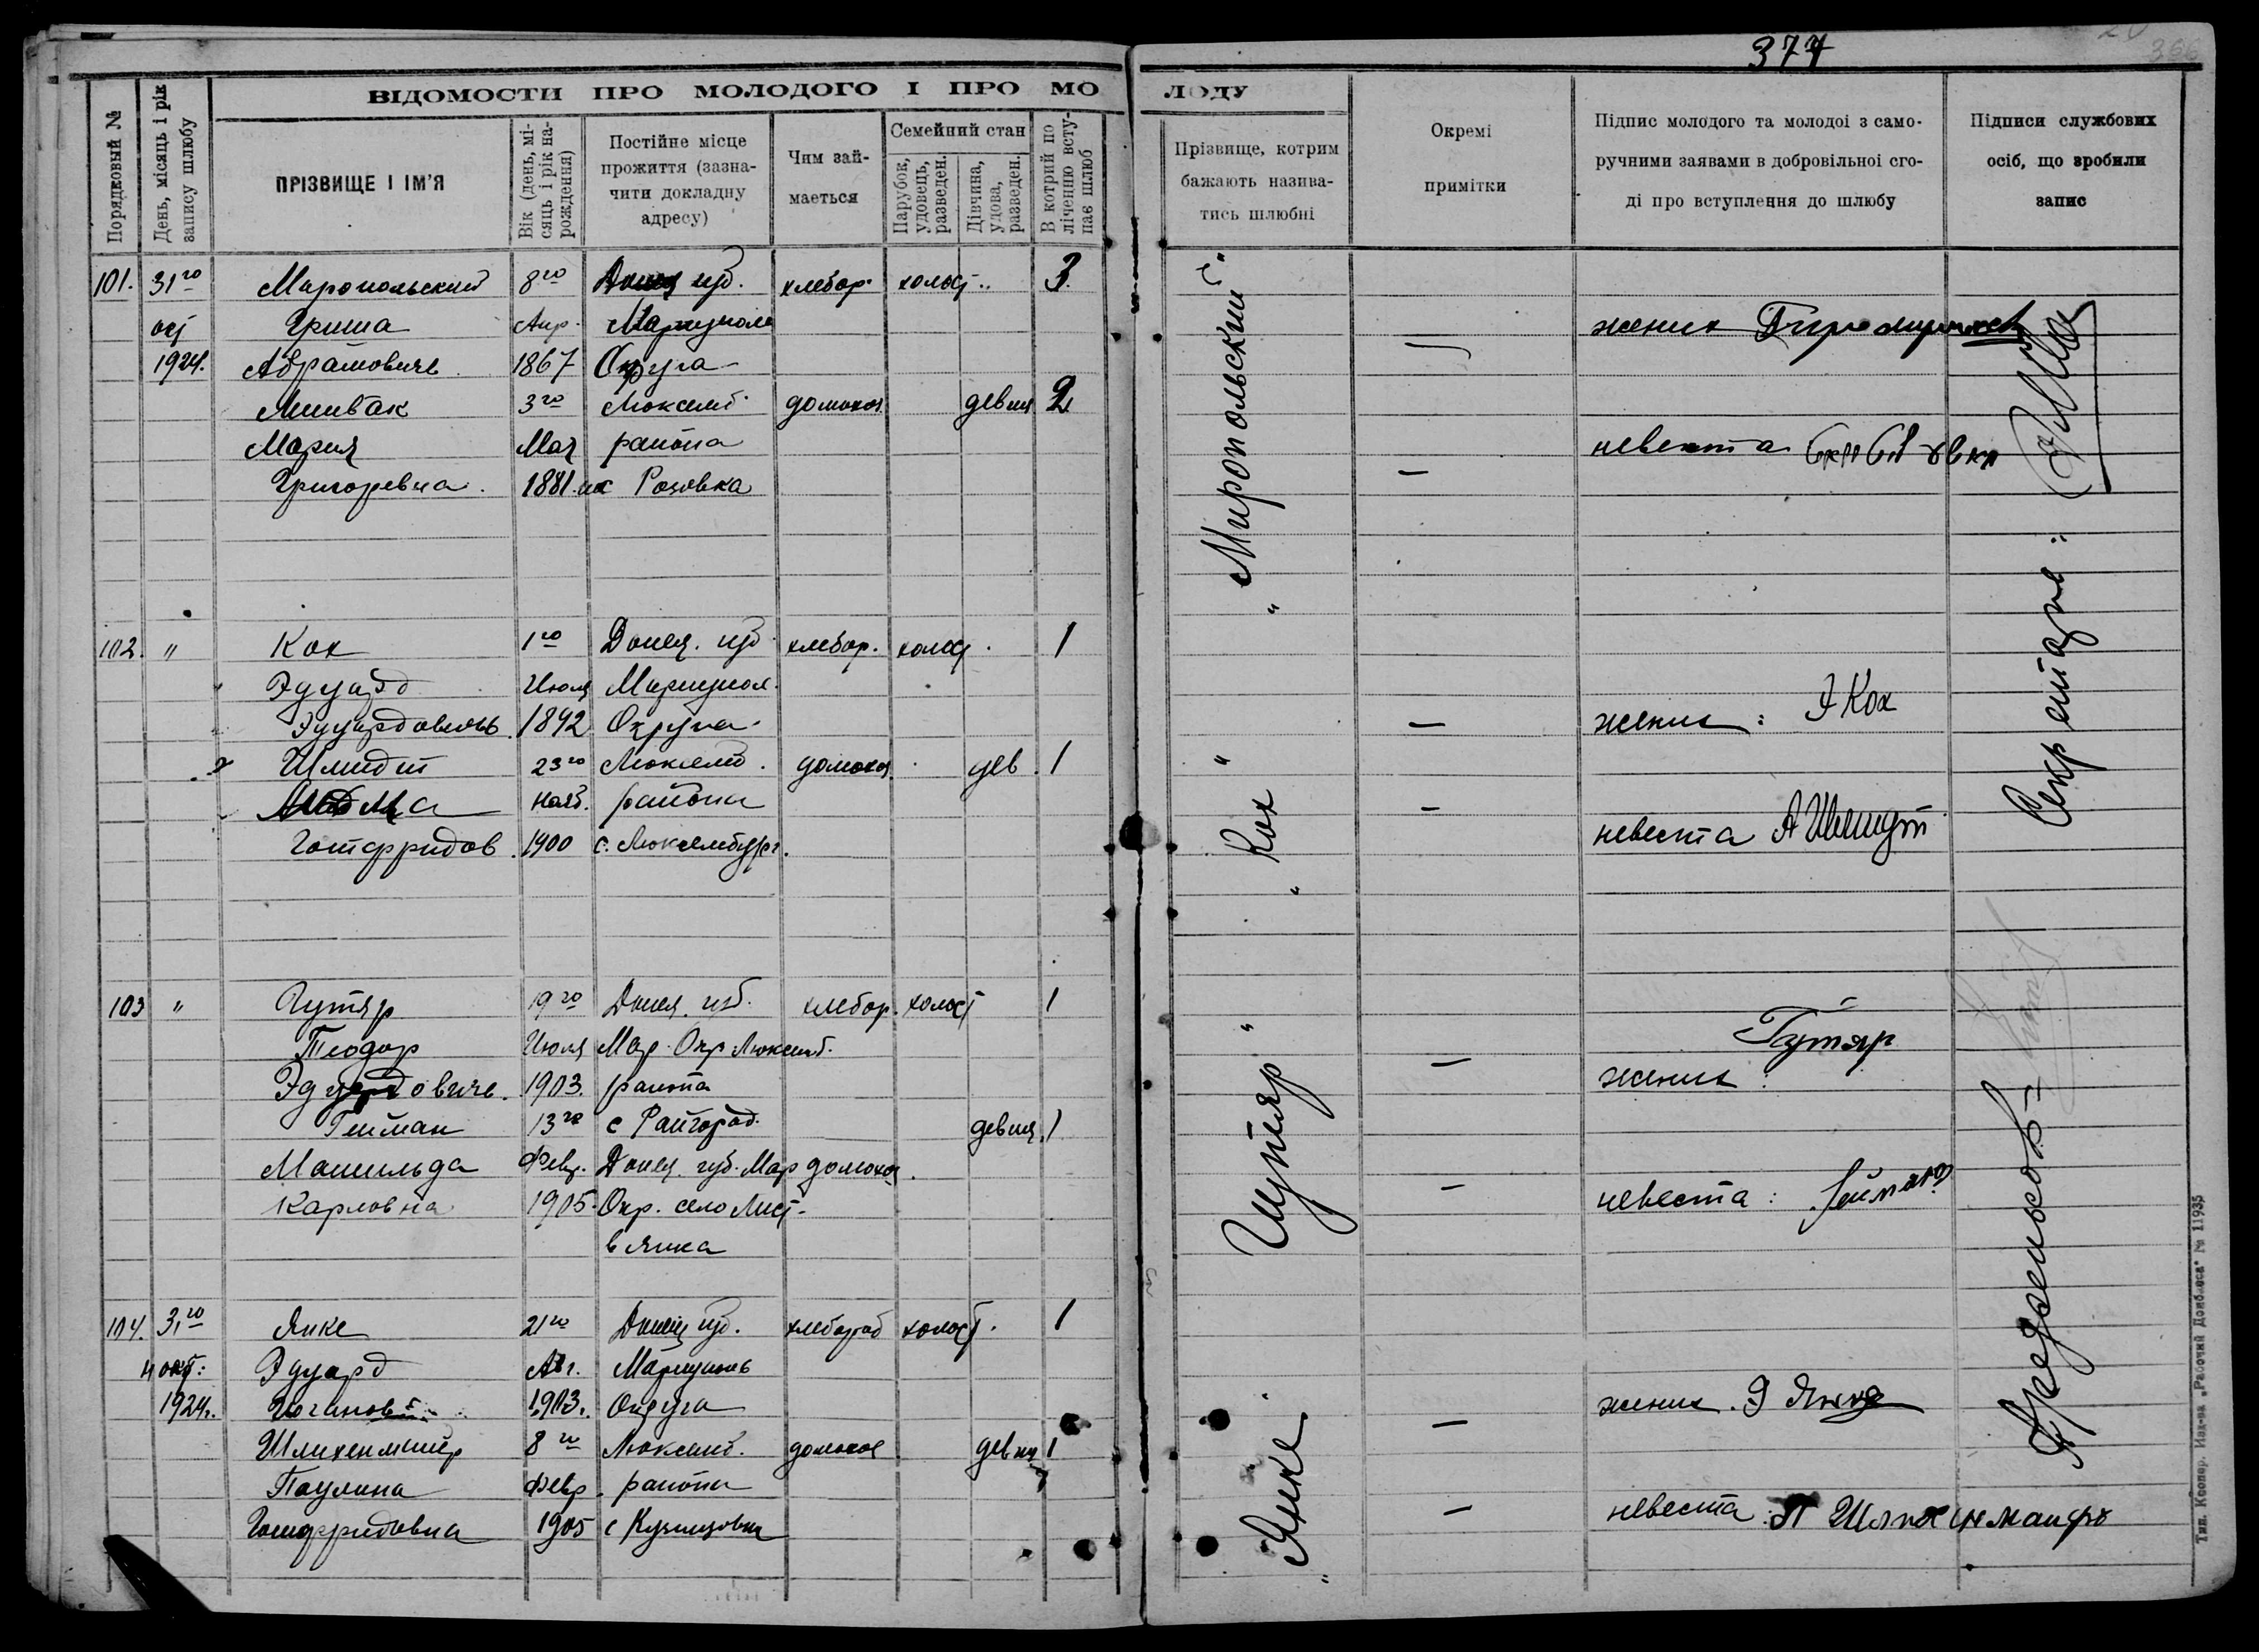 377
366
ВІДОМОСТИ ПРО МОЛОДОГО І ПРО МОЛОДУ
Порядковый №
День, місяць і рік запису шлюбу
ПРІЗВИЩЕ І ІМ'Я
Вік (день, місяць і рік нарождення)
Постійне місце прожиття (зазначити докладну адресу)
Чим займається
Семейний стан
Парубок, удовець, разведен.
Дівчина, удова, разведен.
В котрий по ліченню вступає шлюб
Прізвище, котрим бажають називатись шлюбні
Окремі примітки
Підпис молодого та молодоі з саморучними заявами в добровільної згоді про вступлення до шлюбу
Підписи службових осіб, що зробили запис
101. 31го Миропольский 8го Донец губ. хлебор. холост.. 3.
окт Гриша Апр. Мариупол жених
1924. Абрамовичь 1867 Округа —
Мишвак 3го Люксемб. домохоз девиц 2
Мария Мая района невеста
Григоревна. 1881. Розовка —
„Миропольский"
102. " Кох 1го Донец. губ. хлебор. холост. 1
Эдуард Июля Мариупол.
Эдуардович. 1892 Округа — жених: Э Кох
Шмидт 23го Люксемб. домохоз. дев. 1
нояб. района —
Готфридов. 1900 с. Люксембург. невеста А Шмидт
„Кох"
103 " Гутяр 19го Донец. губ. хлебор. холост 1
Теодор Июля Мар. Окр Люксемб. Гутяр
Эдуардовичь. 1903. района — жених:
Гейман 13го с Райгород. девиц. 1
Матильда Февр. Донец. губ. Мар домохоз.
Карловна 1905. Окр. село Лист- — невеста: Гейман
вянка
Гутяр"
104. 31го Янке 21го Донец губ. хлебороб холост. 1
окт: Эдуард Авг. Мариуполь
1924г. 1903. Округа — жених. Э Янке
8го Люксемб. домохоз девиц 1
Паулина Февр. района
Готфридовна 1905 с Кузнецовка — невеста: П
„Янке"
Секретарь:
Тип. Коопер. Изд-ва „Рабочий Донбасса" № 11935